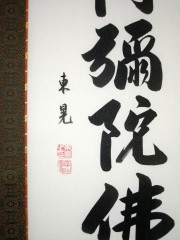 彌陀佛
東晃